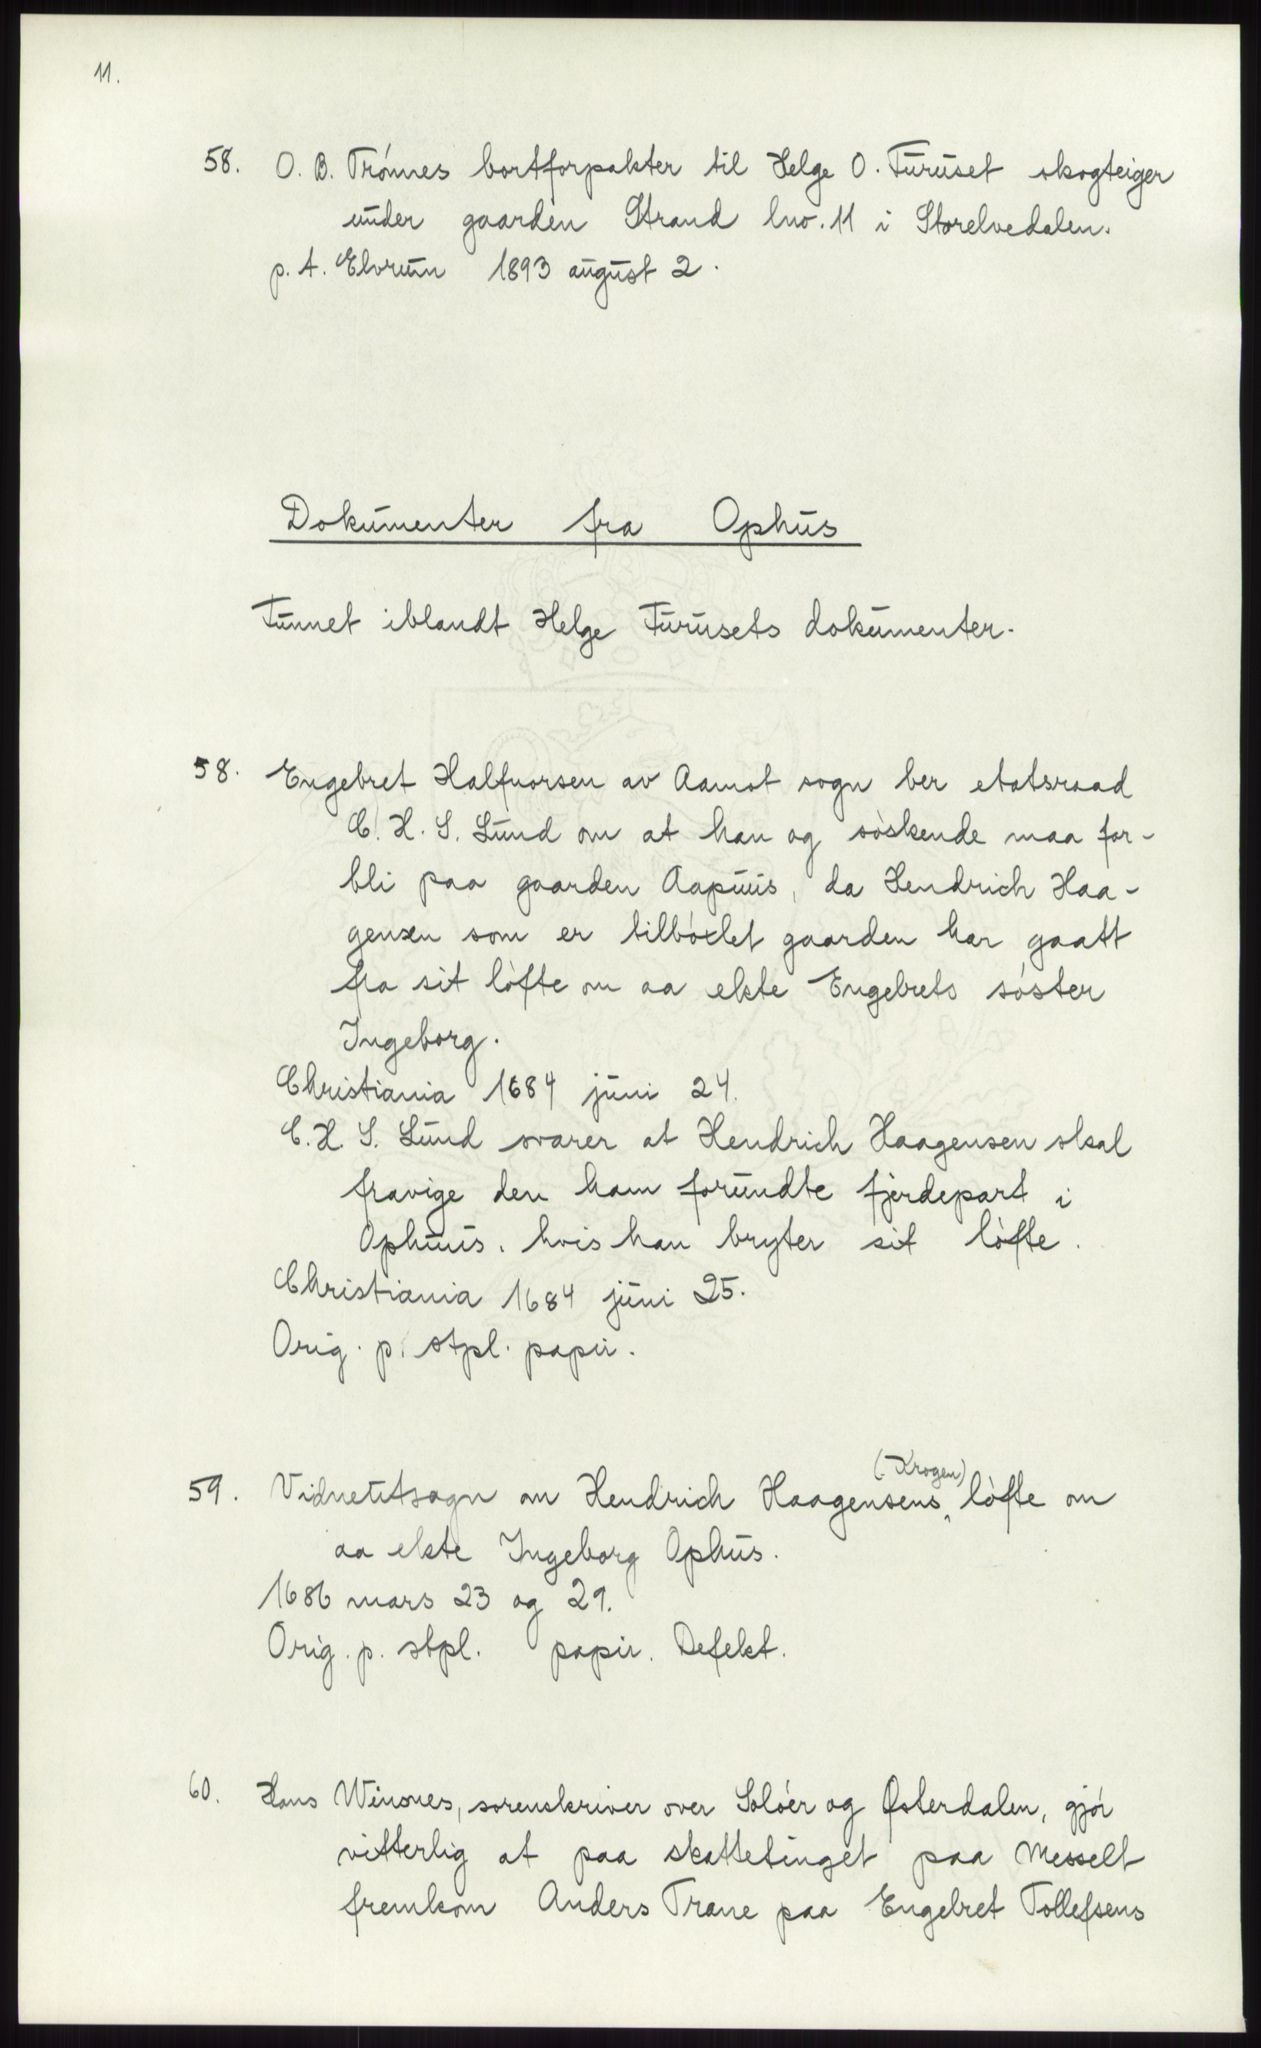 11.
58. O. B. Trónnes bortforpakter til Helge O. Furuset skogteiger
under gaarden Strand lno. 11 i Storelvedalen.
p. t. Elvrum 1893 august 2.
Dokumenter fra Ophus
Funnet iblandt Helge Furusets dokumenter.
58. Engebret Halfuorsen av Aamot sogn ber etatsraad
C. H. S. Lund om at han og sóskende maa for-
bli paa gaarden Aapuus, da Hendrich Haa-
gensen som er tilbóxlet gaarden har gaatt
fra sit lófte om aa ekte Engebrets sóster
Ingeborg.
Christiania 1684 juni 24.
C. H. S. Lund svarer at Hendrich Haagensen skal
fravige den ham forundte fjerdepart i
Ophuus, hvis han bryter sit lófte.
Christiania 1684 juni 25.
Orig. p. stpl. papir.
59. Vidneutsagn om Hendrich Haagensens (Krogen) lófte om
aa ekte Ingeborg Ophus.
1686 mars 23 og 29.
Orig. p. stpl. papir. Defekt.
60. Hans Winsnes, sorenskriver over Solóer og Østerdalen, gjór
vitterlig at paa skattetinget paa Messelt
fremkom Anders Trane paa Engebret Tollefsens